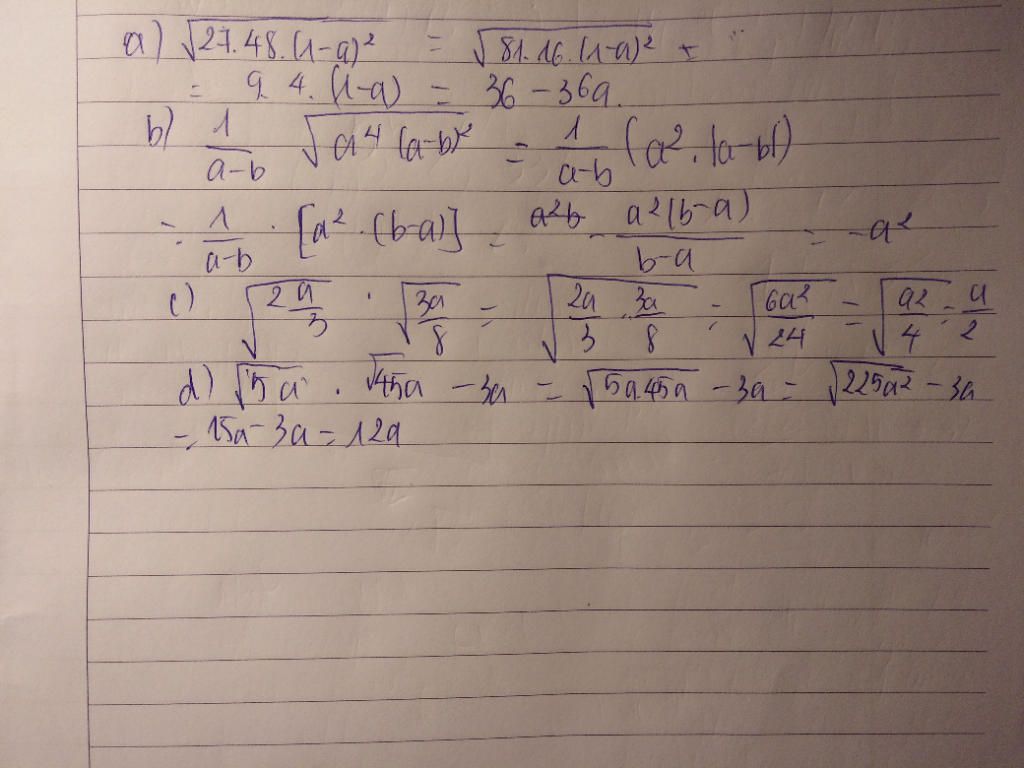 a) √27.48.(1-a)² = √81.16.(1-a)² =
= 9.4.(1-a) = 36 - 36a.
b) 1/(a-b) √a⁴(a-b)² = 1/(a-b) (a².|a-b|)
= 1/(a-b) . [a².(b-a)] = - a²(b-a)/(b-a) = -a²
c) √(2a/3) . √(3a/8) = √(2a/3 . 3a/8) = √(6a²/24) = √(a²/4) = a/2
d) √5a . √45a - 3a = √5a.45a - 3a = √225a² - 3a
= 15a - 3a = 12a